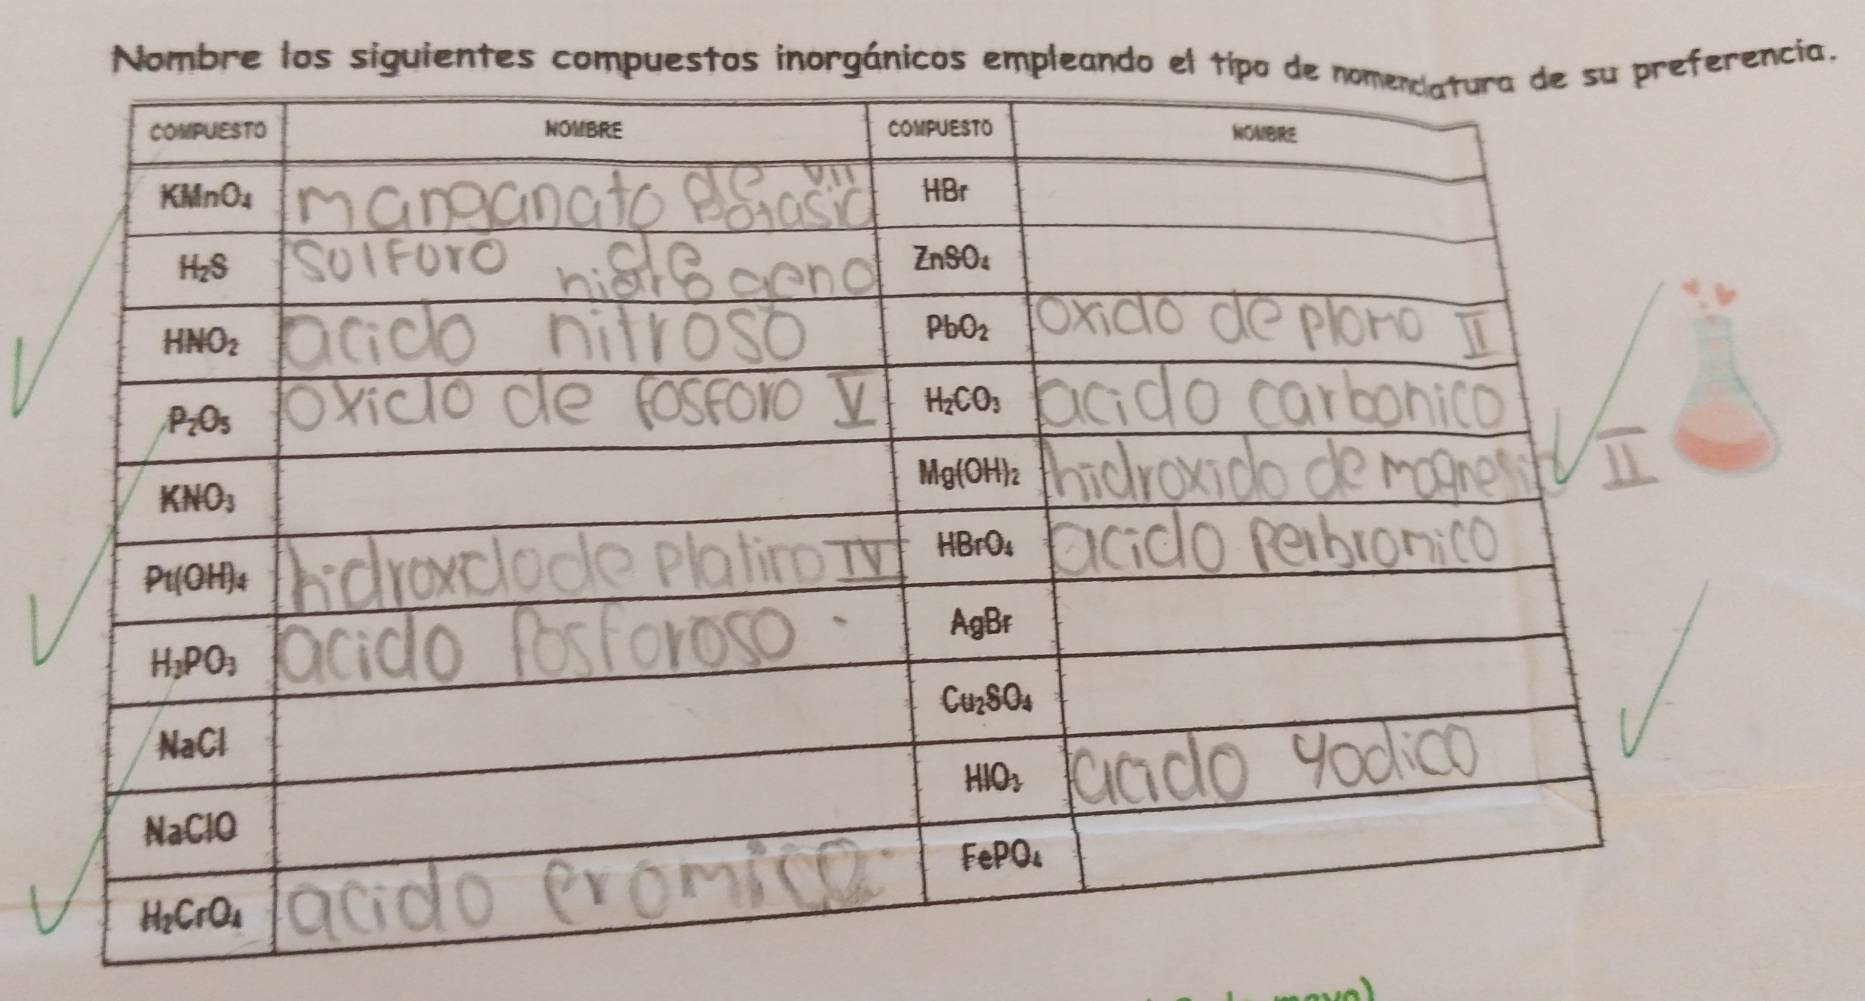 Nombre los siguientes compuestos inorgánicos empleando el tipo de nomenclatura de su preferencia.
COMPUESTO NOMBRE COMPUESTO NOMBRE
KMnO₄ manganato de potasio VII HBr
H₂S sulfuro hidrogeno ZnSO₄
HNO₂ acido nitroso PbO₂ oxido de plomo II
P₂O₅ oxido de fosforo V H₂CO₃ acido carbonico
KNO₃ Mg(OH)₂ hidroxido de magnesio II
Pt(OH)₄ hidroxido de platino IV HBrO₄ acido perbromico
H₃PO₃ acido fosforoso. AgBr
NaCl Cu₂SO₄
NaClO HIO₃ acido yodico
H₂CrO₄ acido cromico. FePO₄